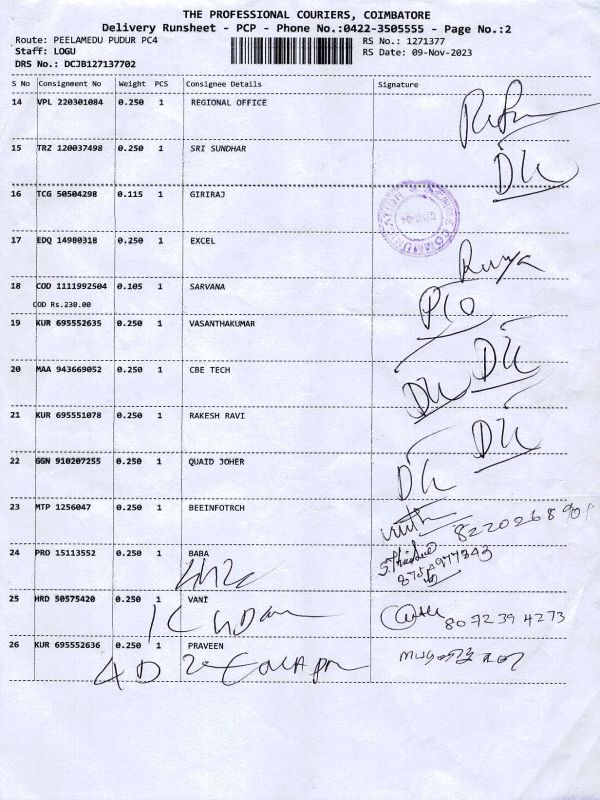 THE PROFESSIONAL COURIERS, COIMBATORE
Delivery Runsheet - PCP - Phone No.:0422-3505555 - Page No.:2
Route: PEELAMEDU PUDUR PC4 RS No.: 1271377
Staff: LOGU RS Date: 09-Nov-2023
DRS No.: DCJB127137702
S No Consignment No Weight PCS Consignee Details Signature
14 VPL 220301084 0.250 1 REGIONAL OFFICE
15 TRZ 120037498 0.250 1 SRI SUNDHAR
16 TCG 50504298 0.115 1 GIRIRAJ
17 EDQ 14980318 0.250 1 EXCEL
18 COD 1111992504 0.105 1 SARVANA
COD Rs.230.00
19 KUR 695552635 0.250 1 VASANTHAKUMAR
20 MAA 943669052 0.250 1 CBE TECH
21 KUR 695551078 0.250 1 RAKESH RAVI
22 GGN 910207255 0.250 1 QUAID JOHER
23 MTP 1256047 0.250 1 BEEINFOTRCH
24 PRO 15113552 0.250 1 BABA
25 HRD 50575420 0.250 1 VANI
8072394273
26 KUR 695552636 0.250 1 PRAVEEN